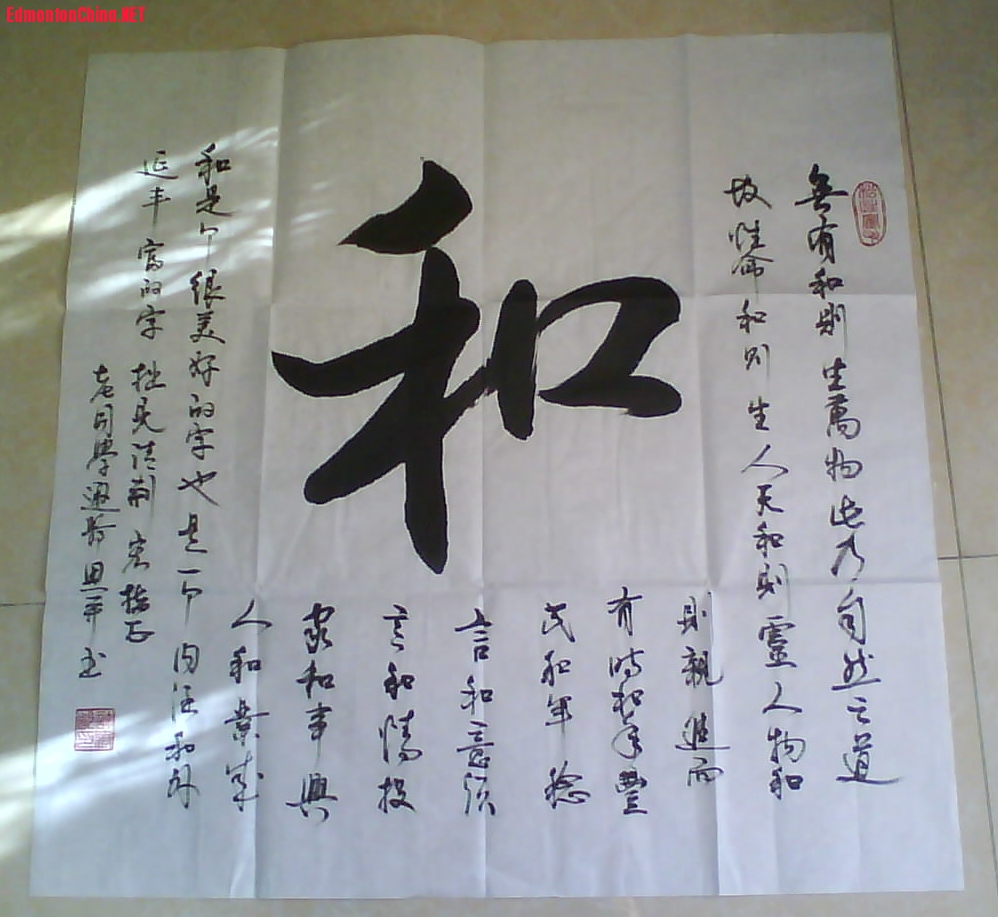 EdmontonChina.NET
無有和則生萬物此乃自然之道
故性命和则生人天和则靈人物和
则親進而
有時和年豐
民和年稔
言和意须
言和情投
家和事興
人和業成
和
和是个很美好的字也是一个内涵和外
延丰富的字拙見清
老同學